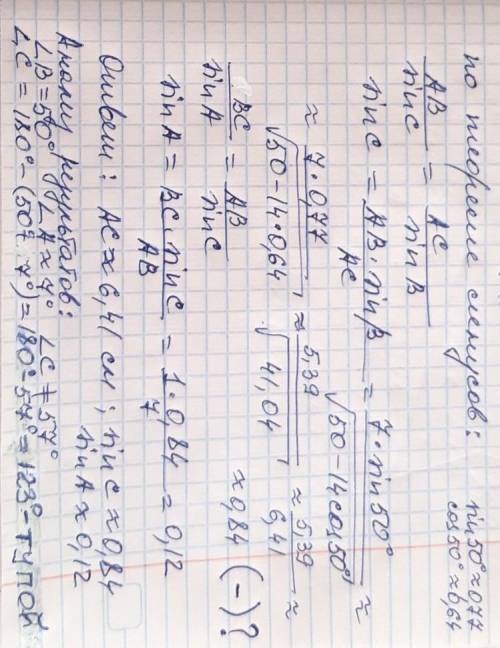 по теореме синусов:
sin50°≈0,77
cos50°≈0,64
AB/sinC = AC/sinB
sinC = AB·sinB/AC = 7·sin50°/√(50-14cos50°) ≈
≈ 7·0,77/√(50-14·0,64) ≈ 5,39/√41,04 ≈ 5,39/6,41 ≈
≈0,84 (-)?
BC/sinA = AB/sinC
sinA = BC·sinC/AB = 1·0,84/7 = 0,12
Ответ: AC≈6,41 см; sinC≈0,84
sinA≈0,12
Анализ результатов:
∠B=50° ∠A≈7° ∠C≠57°
∠C = 180°-(50°+7°)=180°-57°=123°-тупой